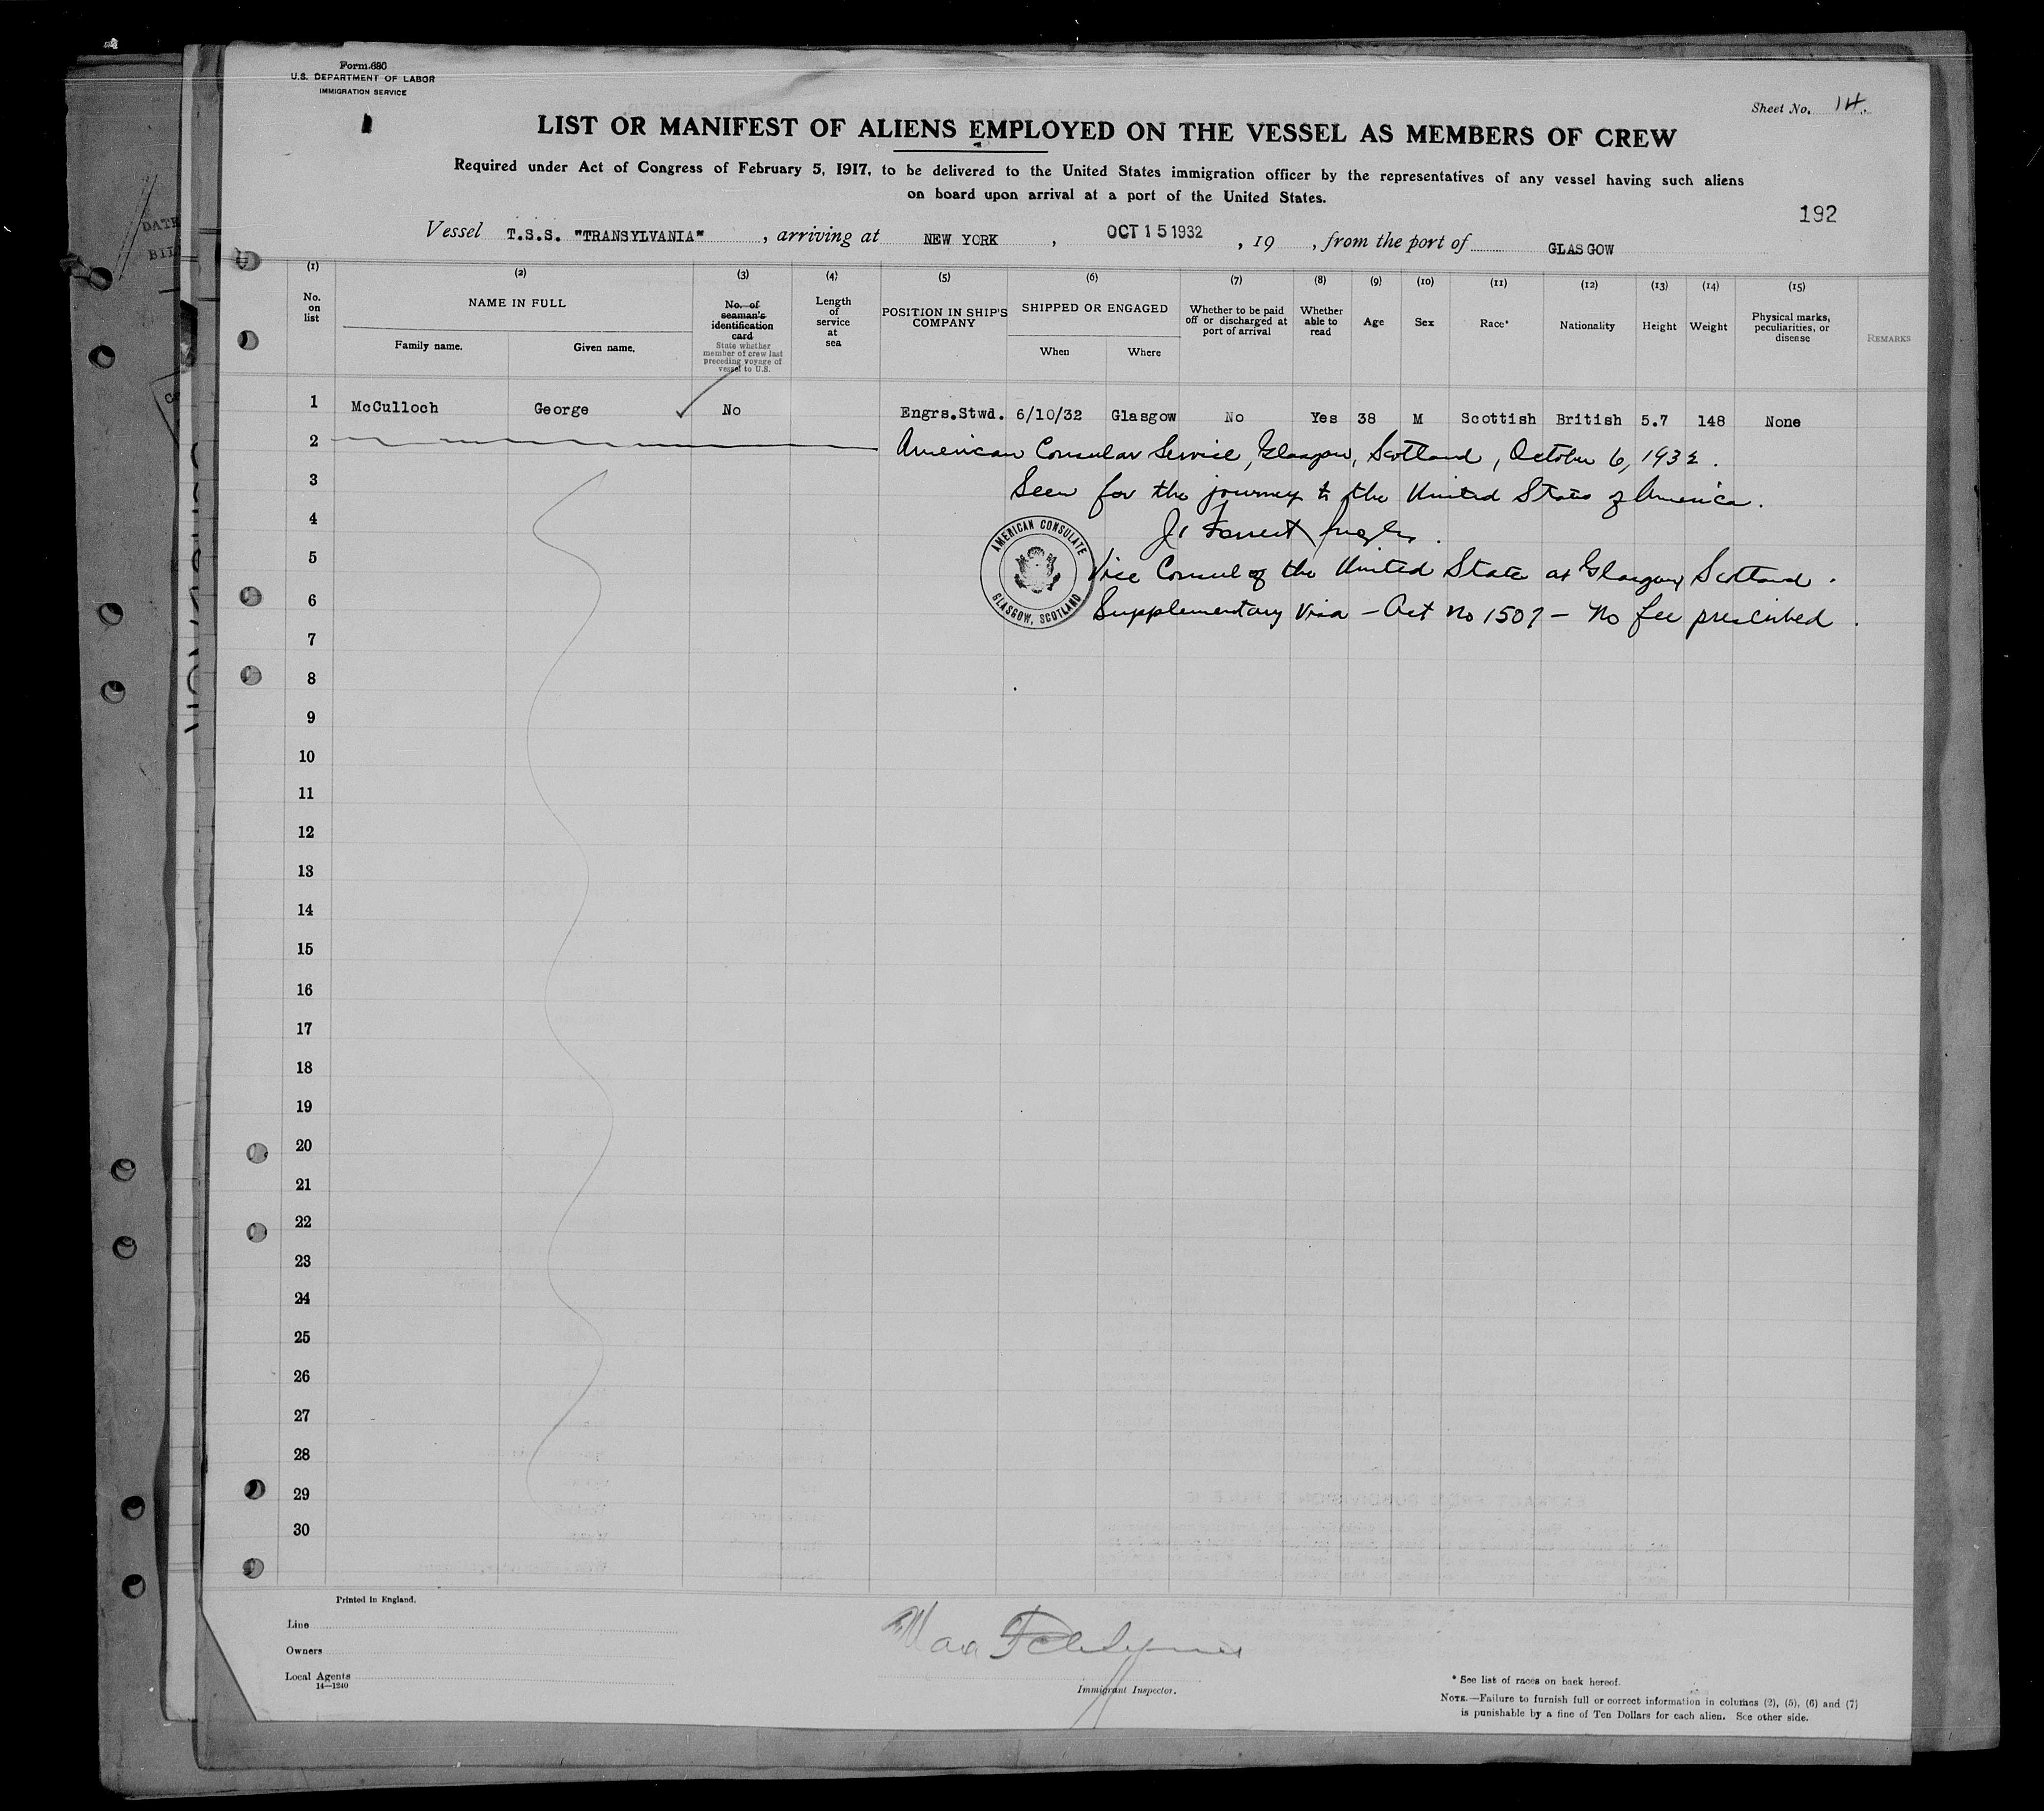 Form 680
U.S. DEPARTMENT OF LABOR
IMMIGRATION SERVICE
Sheet No. 14.
LIST OR MANIFEST OF ALIENS EMPLOYED ON THE VESSEL AS MEMBERS OF CREW
Required under Act of Congress of February 5, 1917, to be delivered to the United States immigration officer by the representatives of any vessel having such aliens
on board upon arrival at a port of the United States.
192
Vessel T.S.S. "TRANSYLVANIA", arriving at NEW YORK, OCT 15 1932, 19 , from the port of GLASGOW
(1) (2) (3) (4) (5) (6) (7) (8) (9) (10) (11) (12) (13) (14) (15)
No. on list
NAME IN FULL
Family name. Given name.
No. of seaman's identification card
State whether member of crew last preceding voyage of vessel to U.S.
Length of service at sea
POSITION IN SHIP'S COMPANY
SHIPPED OR ENGAGED
When Where
Whether to be paid off or discharged at port of arrival
Whether able to read
Age
Sex
Race*
Nationality
Height
Weight
Physical marks, peculiarities, or disease
REMARKS
1 McCulloch George No Engrs.Stwd. 6/10/32 Glasgow No Yes 38 M Scottish British 5.7 148 None
2 American Consular Service, Glasgow, Scotland, October 6, 1932.
3 Seen for the journey to the United States of America.
4 Forrest
AMERICAN CONSULATE
GLASGOW, SCOTLAND
5 Vice Consul of the United States at Glasgow Scotland.
6 Supplementary Visa — Act No 1507 — No fee prescribed.
7
8
9
10
11
12
13
14
15
16
17
18
19
20
21
22
23
24
25
26
27
28
29
30
Printed in England.
Line
Owners
Local Agents
14—1240
Max
Immigrant Inspector.
* See list of races on back hereof.
NOTE.—Failure to furnish full or correct information in columns (2), (5), (6) and (7)
is punishable by a fine of Ten Dollars for each alien. See other side.